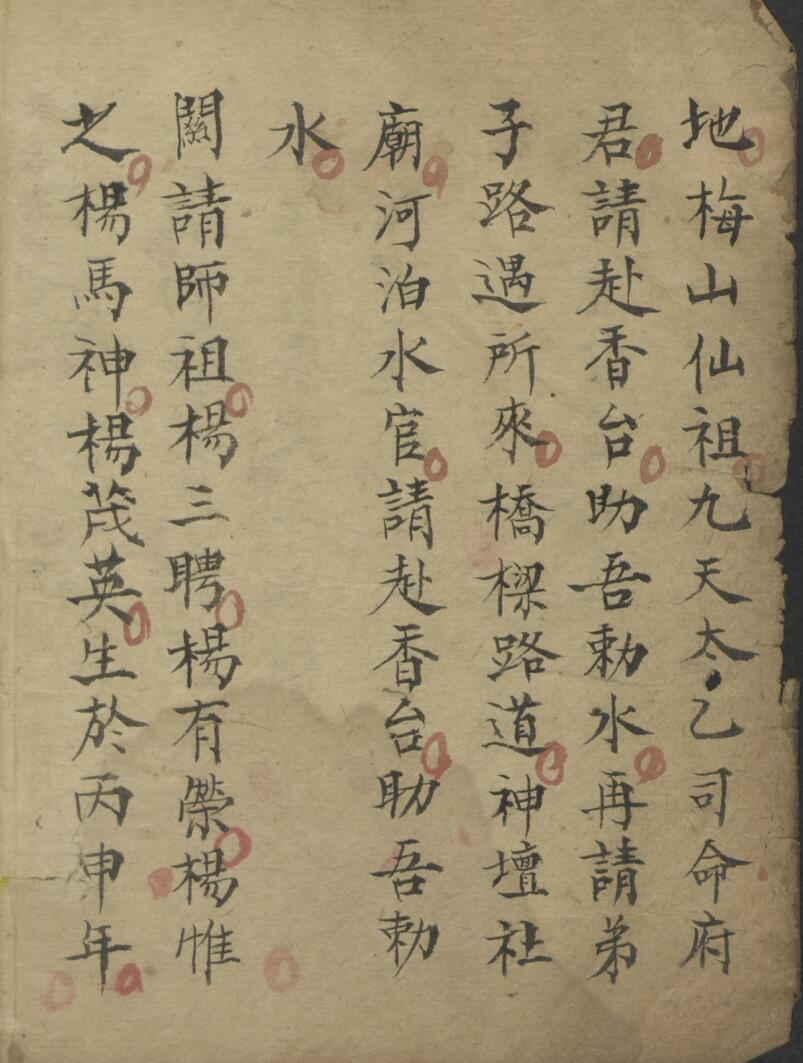 地梅山仙祖九天太乙司命府
君請赴香台助吾勅水再請弟
子路遇所來橋樑路道神壇社
廟河泊水官請赴香台助吾勅
水
關請師祖楊三聘楊有榮楊惟
之楊馬神楊茂英生於丙申年